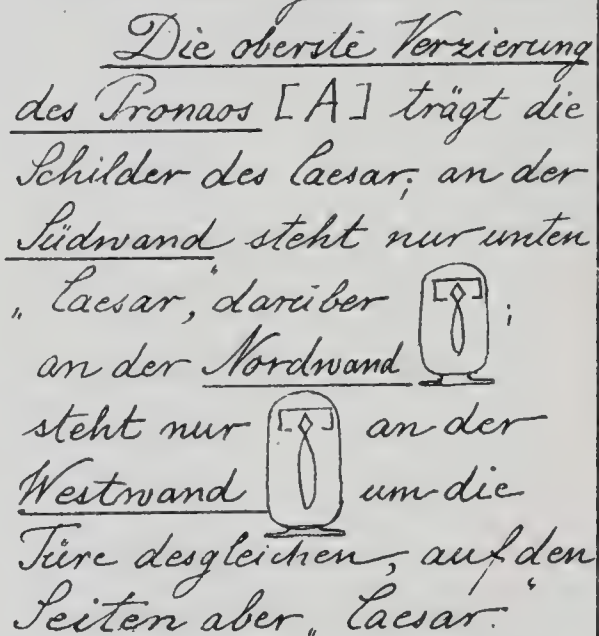 Die oberste Verzierung
des Pronaos [A] trägt die
Schilder des Caesar; an der
Südwand steht nur unten
„Caesar,“ darüber ;
an der Nordwand
steht nur an der
Westwand um die
Türe desgleichen, auf den
Seiten aber „Caesar.“